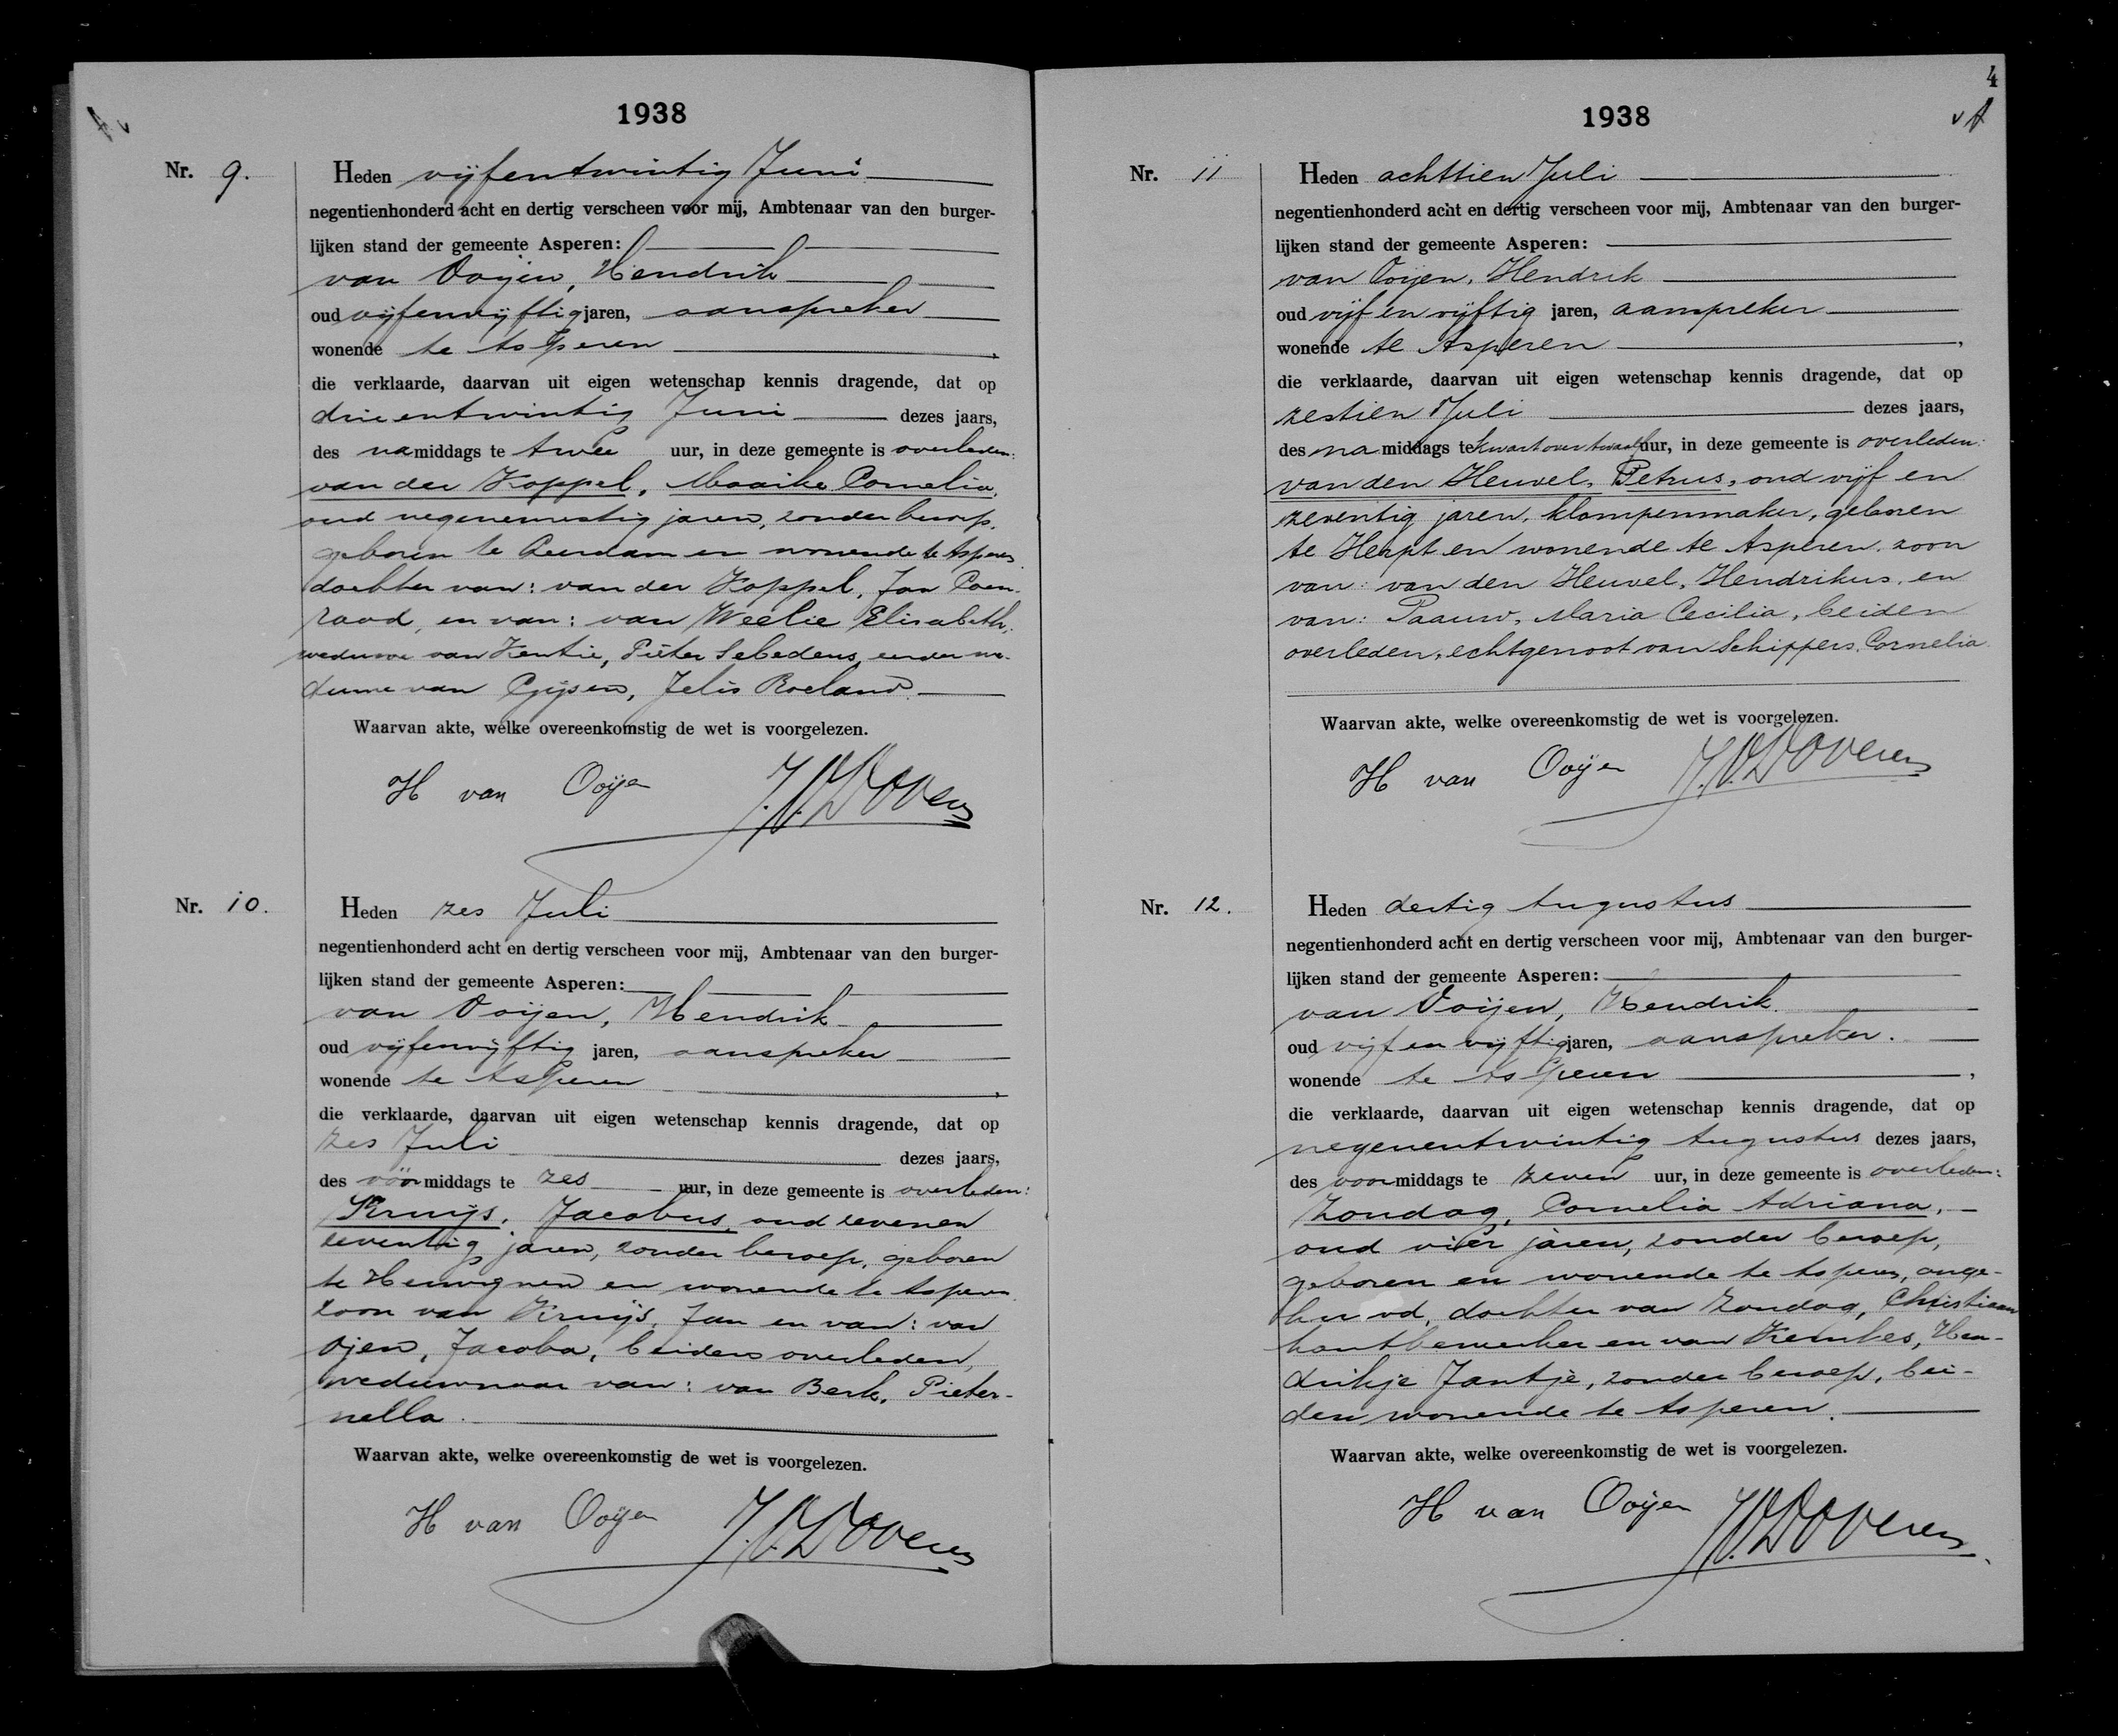 1938
Nr. 9.
Heden vijfentwintig Juni
negentienhonderd acht en dertig verscheen voor mij, Ambtenaar van den burger-
lijken stand der gemeente Asperen:
van Ooijen, Hendrik
oud vijfenvijftig jaren, aanspreker
wonende te Asperen ,
die verklaarde, daarvan uit eigen wetenschap kennis dragende, dat op
drieentwintig Juni dezes jaars,
des namiddags te twee uur, in deze gemeente is overleden:
van der Koppel, Maaike Cornelia,
oud negenenestig jaren, zonder beroep,
geboren te Leerdam en wonende te Asperen
dochter van: van der Koppel, Jan Coen-
raad, en van: van Weelie Elisabeth,
weduwe van Kentie, Pieter Sebedeus, eerder we-
duwe van Gijsen, Jelis Roeland.
Waarvan akte, welke overeenkomstig de wet is voorgelezen.
H van Ooijen J.V.Doveren
Nr. 10.
Heden zes Juli
negentienhonderd acht en dertig verscheen voor mij, Ambtenaar van den burger-
lijken stand der gemeente Asperen:
van Ooijen, Hendrik
oud vijfenvijftig jaren, aanspreker
wonende te Asperen ,
die verklaarde, daarvan uit eigen wetenschap kennis dragende, dat op
zes Juli dezes jaars,
des voormiddags te zes uur, in deze gemeente is overleden:
Kruijs, Jacobus, oud zevenen
zeventig jaren, zonder beroep, geboren
te Herwijnen en wonende te Asperen
zoon van Kruijs, Jan en van: van
Ojen, Jacoba, beiden overleden,
weduwnaar van: van Berk, Pieter-
nella.
Waarvan akte, welke overeenkomstig de wet is voorgelezen.
H van Ooijen J.V.Doveren
4
1938
v A
Nr. 11
Heden achttien Juli
negentienhonderd acht en dertig verscheen voor mij, Ambtenaar van den burger-
lijken stand der gemeente Asperen:
van Ooijen, Hendrik
oud vijf en vijftig jaren, aanspreker
wonende te Asperen ,
die verklaarde, daarvan uit eigen wetenschap kennis dragende, dat op
zestien Juli dezes jaars,
des namiddags te kwart over twaalf uur, in deze gemeente is overleden:
van den Heuvel, Petrus, oud vijf en
zeventig jaren, klompenmaker, geboren
te Herpt en wonende te Asperen, zoon
van: van den Heuvel, Hendrikus, en
van: Paauw, Maria Cecilia, beiden
overleden, echtgenoot van Schippers, Cornelia
Waarvan akte, welke overeenkomstig de wet is voorgelezen.
H van Ooijen J.V.Doveren
Nr. 12.
Heden dertig Augustus
negentienhonderd acht en dertig verscheen voor mij, Ambtenaar van den burger-
lijken stand der gemeente Asperen:
van Ooijen, Hendrik
oud vijf en vijftig jaren, aanspreker.
wonende te Asperen ,
die verklaarde, daarvan uit eigen wetenschap kennis dragende, dat op
negenentwintig Augustus dezes jaars,
des voormiddags te zeven uur, in deze gemeente is overleden:
Zondag, Cornelia Adriana,
oud vier jaren, zonder beroep,
geboren en wonende te Asperen, onge-
huwd, dochter van Zondag, Christiaan
houtbewerker en van Kembes, Hen-
drikje Jantje, zonder beroep, bei-
den wonende te Asperen.
Waarvan akte, welke overeenkomstig de wet is voorgelezen.
H van Ooijen J.V.Doveren